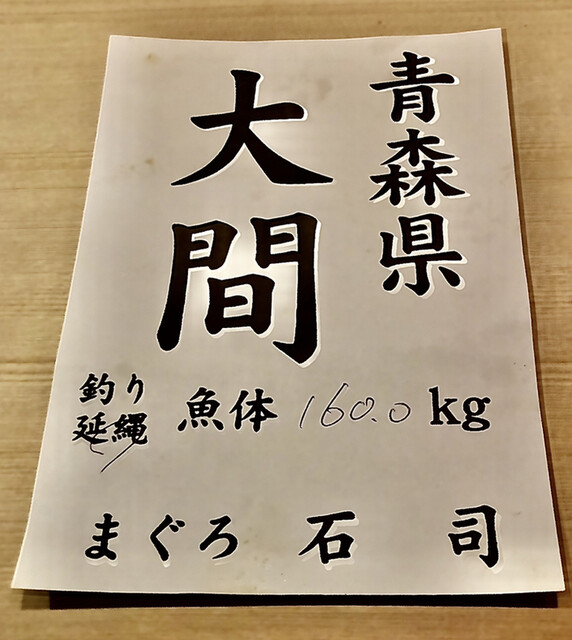 青森県
大間
釣り
延縄
魚体 160.0 kg
まぐろ 石 司